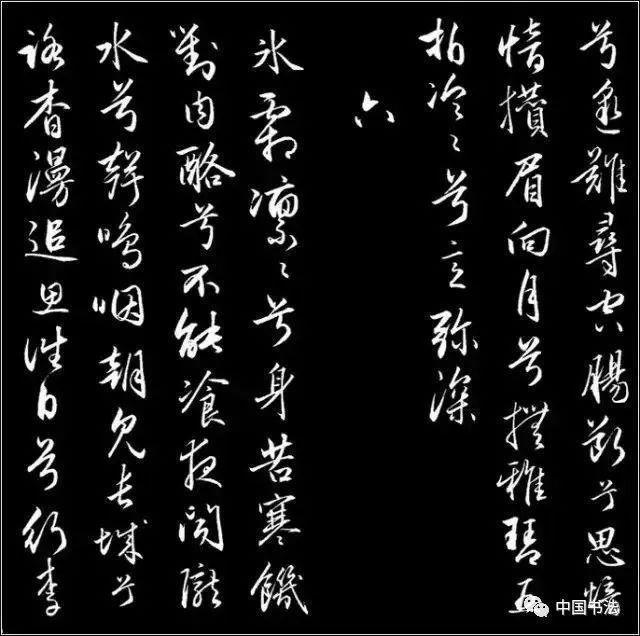 兮邈難尋空腸斷兮思愔
愔攢眉向月兮撫雅琴五
拍泠〻兮意弥深
六
氷霜凛〻兮身苦寒饑
對肉酪兮不能飡夜聞隴
水兮聲嗚咽朝見長城兮
路杳漫追思往日兮行李
中国书法